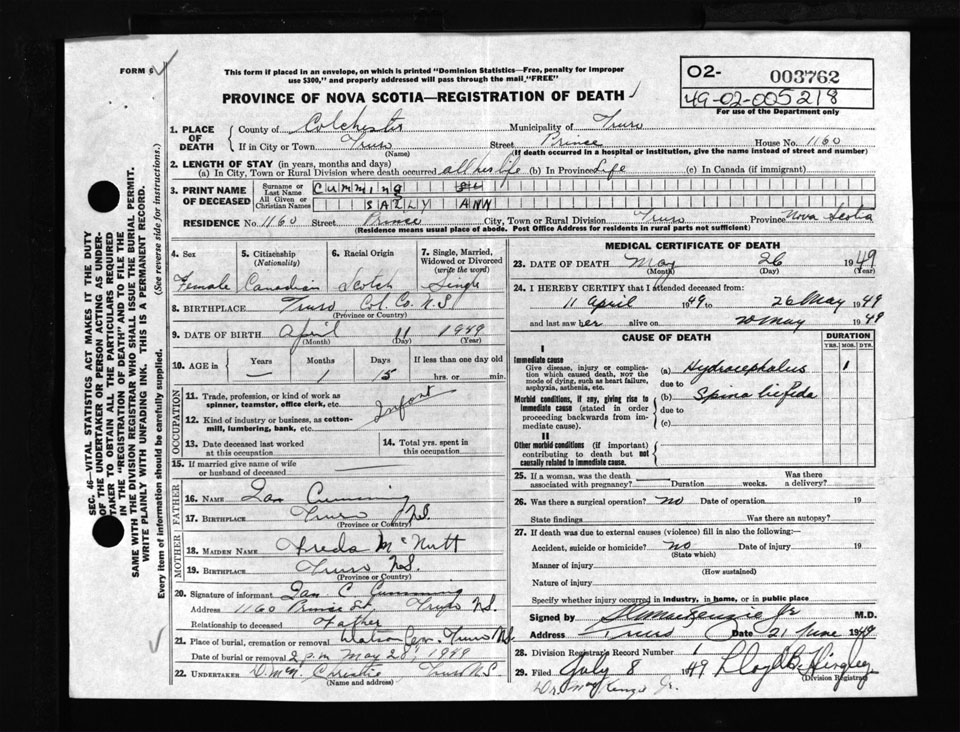 FORM 6
This form if placed in an envelope, on which is printed "Dominion Statistics—Free, penalty for improper
use $300," and properly addressed will pass through the mail "FREE"
PROVINCE OF NOVA SCOTIA—REGISTRATION OF DEATH
02- 003762
49-02-005218
For use of the Department only
1. PLACE OF DEATH
County of Colchester Municipality of Truro
If in City or Town Truro Street Prince House No. 1160
(Name) (If death occurred in a hospital or institution, give the name instead of street and number)
2. LENGTH OF STAY (in years, months and days)
(a) In City, Town or Rural Division where death occurred all his life (b) In Province Life (c) In Canada (if immigrant)
3. PRINT NAME OF DECEASED
Surname or Last Name CUMMING
All Given or Christian Names SALLY ANN
RESIDENCE No. 1160 Street Prince City, Town or Rural Division Truro Province Nova Scotia
(Residence means usual place of abode. Post Office Address for residents in rural parts not sufficient)
4. Sex 5. Citizenship (Nationality) 6. Racial Origin 7. Single, Married, Widowed or Divorced (write the word)
Female Canadian Scotch Single
8. BIRTHPLACE Truro Col. Co. N.S
(Province or Country)
9. DATE OF BIRTH April 11 1949
(Month) (Day) (Year)
10. AGE in Years Months Days If less than one day old
— 1 15 hrs. or min.
OCCUPATION
11. Trade, profession, or kind of work as spinner, teamster, office clerk, etc. Infant
12. Kind of industry or business, as cotton-mill, lumbering, bank, etc.
13. Date deceased last worked at this occupation
14. Total yrs. spent in this occupation
15. If married give name of wife or husband of deceased
FATHER
16. NAME Ian Cumming
17. BIRTHPLACE Truro N.S.
(Province or Country)
MOTHER
18. MAIDEN NAME Freda McNutt
19. BIRTHPLACE Truro N.S.
(Province or Country)
20. Signature of informant Ian C. Cumming
Address 1160 Prince St. Truro N.S.
Relationship to deceased Father
21. Place of burial, cremation or removal Cem. Truro N.S.
Date of burial or removal 2 p.m May 28, 1949
22. UNDERTAKER Christie Truro N.S.
(Name and address)
MEDICAL CERTIFICATE OF DEATH
23. DATE OF DEATH May 26 1949
(Month) (Day) (Year)
24. I HEREBY CERTIFY that I attended deceased from:
11 April 1949 to 26 May 1949
and last saw her alive on 20 May 1949
CAUSE OF DEATH DURATION
YRS. MOS. DYS.
I
Immediate cause
Give disease, injury or complication which caused death, not the mode of dying, such as heart failure, asphyxia, asthenia, etc.
(a) Hydrocephalus 1
due to
Morbid conditions, if any, giving rise to immediate cause (stated in order proceeding backwards from immediate cause).
(b) Spina bifida
due to
(c)
II
Other morbid conditions (if important) contributing to death but not causally related to immediate cause.
25. If a woman, was the death associated with pregnancy? Duration weeks. Was there a delivery?
26. Was there a surgical operation? no Date of operation 19
State findings Was there an autopsy?
27. If death was due to external causes (violence) fill in also the following:
Accident, suicide or homicide? no Date of injury 19
(State which)
Manner of injury
(How sustained)
Nature of injury
Specify whether injury occurred in industry, in home, or in public place
Signed by Jr M.D.
Address Truro Date 21 June 1949
28. Division Registrar's Record Number 1
29. Filed July 8 1949 Lloyd
(Division Registrar)
Dr. MacKenzie Jr.
SEC. 46—VITAL STATISTICS ACT MAKES IT THE DUTY
OF THE UNDERTAKER OR PERSON ACTING AS UNDER-
TAKER TO OBTAIN ALL THE PARTICULARS REQUIRED
IN THE "REGISTRATION OF DEATH" AND TO FILE THE
SAME WITH THE DIVISION REGISTRAR WHO SHALL ISSUE THE BURIAL PERMIT.
WRITE PLAINLY WITH UNFADING INK. THIS IS A PERMANENT RECORD.
Every item of information should be carefully supplied. (See reverse side for instructions.)